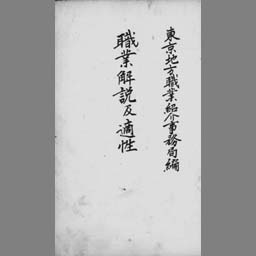 東京地方職業紹介事務局編
職業解説及適性